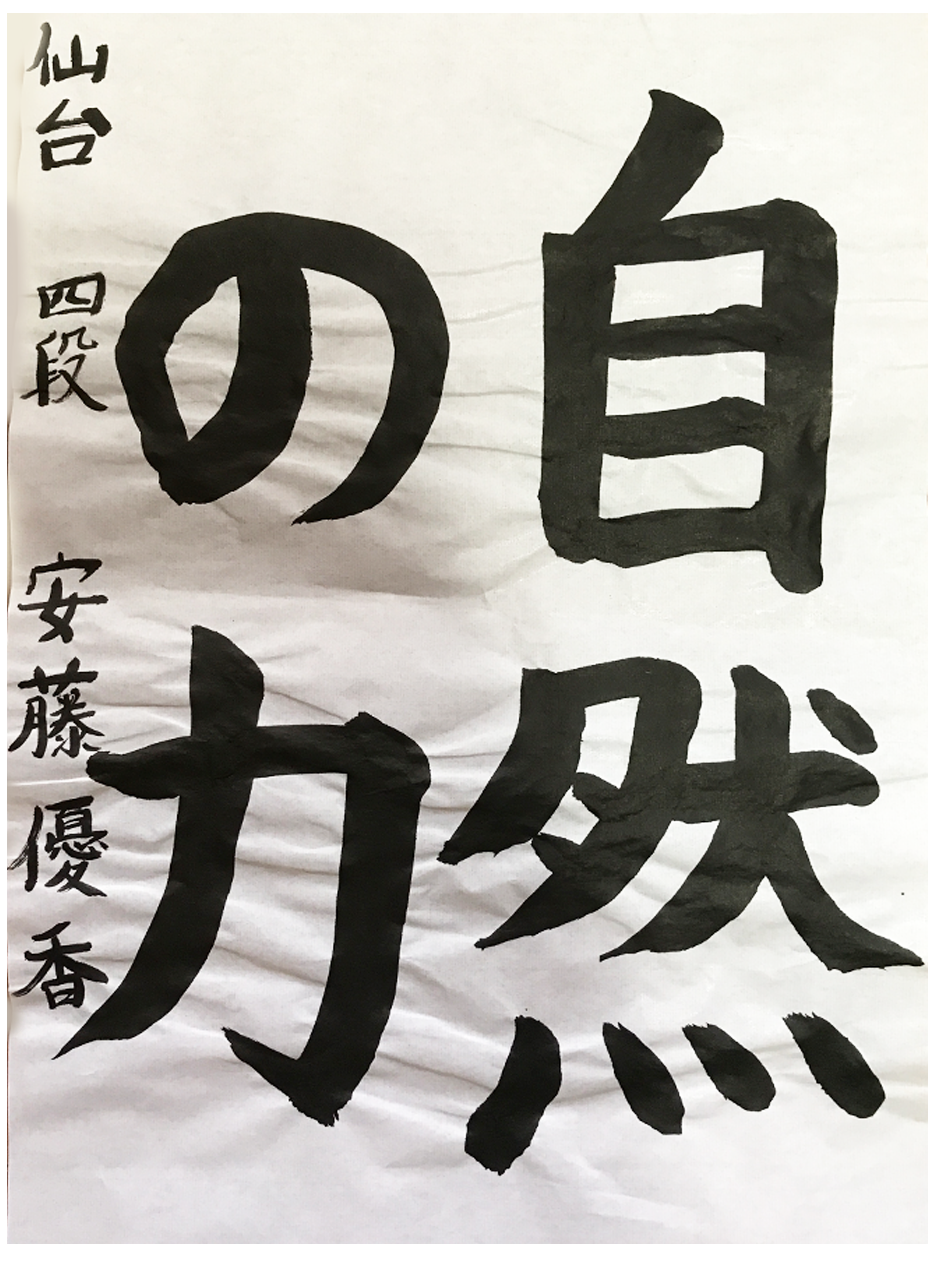 自然
の力
仙台 四段 安藤優香